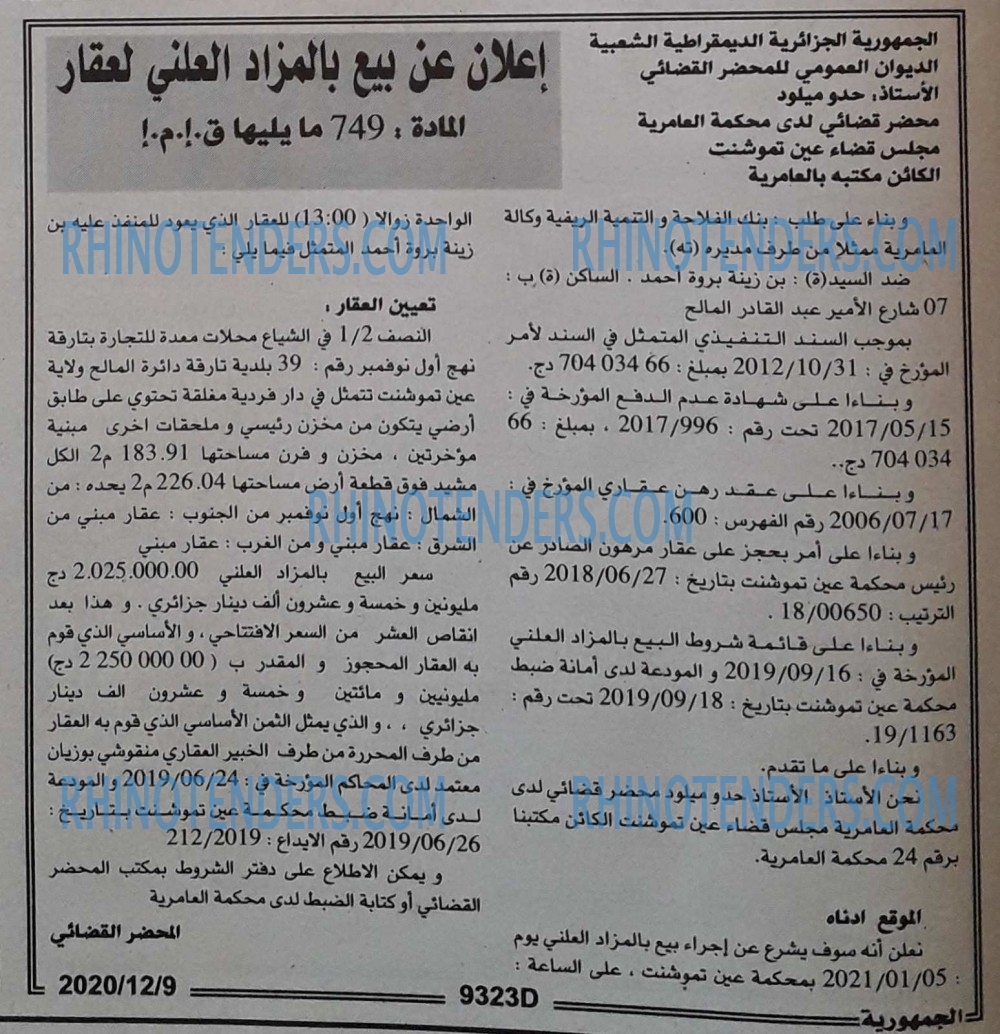 الجمهورية الجزائرية الديمقراطية الشعبية
الديوان العمومي للمحضر القضائي
الأستاذ: حدو ميلود
محضر قضائي لدى محكمة العامرية
مجلس قضاء عين تموشنت
الكائن مكتبه بالعامرية
إعلان عن بيع بالمزاد العلني لعقار
المادة : 749 ما يليها ق.إ.م.إ
و بناء على طلب : بنك الفلاحة و التنمية الريفية وكالة
العامرية ممثلا من طرف مديره (ته).
ضد السيد(ة) : بن زينة بروة احمد . الساكن (ة) ب :
07 شارع الأمير عبد القادر المالح
بموجب السند التنفيذي المتمثل في السند لأمر
المؤرخ في : 2012/10/31 بمبلغ : 66 034 704 دج.
و بناءا على شهادة عدم الدفع المؤرخة في :
2017/05/15 تحت رقم : 2017/996 ، بمبلغ : 66
034 704 دج..
و بناءا على عقد رهن عقاري المؤرخ في :
2006/07/17 رقم الفهرس : 600.
و بناءا على أمر بحجز على عقار مرهون الصادر عن
رئيس محكمة عين تموشنت بتاريخ : 2018/06/27 رقم
الترتيب : 18/00650 .
و بناءا على قائمة شروط البيع بالمزاد العلني
المؤرخة في : 2019/09/16 و المودعة لدى أمانة ضبط
محكمة عين تموشنت بتاريخ : 2019/09/18 تحت رقم :
19/1163.
و بناءا على ما تقدم.
نحن الأستاذ الأستاذ حدو ميلود محضر قضائي لدى
محكمة العامرية مجلس قضاء عين تموشنت الكائن مكتبنا
برقم 24 محكمة العامرية.
الموقع ادناه
نعلن أنه سوف يشرع عن إجراء بيع بالمزاد العلني يوم
: 2021/01/05 بمحكمة عين تموشنت ، على الساعة :
الواحدة زوالا ( 13:00) للعقار الذي يعود للمنفذ عليه بن
زينة بروة أحمد المتمثل فيما يلي :
تعيين العقار :
النصف 1/2 في الشياع محلات معدة للتجارة بتارقة
نهج أول نوفمبر رقم : 39 بلدية تارقة دائرة المالح ولاية
عين تموشنت تتمثل في دار فردية مغلقة تحتوي على طابق
أرضي يتكون من مخزن رئيسي و ملحقات اخرى مبنية
مؤخرتين ، مخزن و فرن مساحتها 183.91 م2 الكل
مشيد فوق قطعة أرض مساحتها 226.04 م2 يحده : من
الشمال : نهج أول نوفمبر من الجنوب : عقار مبني من
الشرق : عقار مبني و من الغرب : عقار مبني
سعر البيع بالمزاد العلني 2.025.000.00 دج
مليونين و خمسة و عشرون ألف دينار جزائري . و هذا بعد
انقاص العشر من السعر الافتتاحي ، و الأساسي الذي قوم
به العقار المحجوز و المقدر ب ( 00 000 250 2 دج)
مليونيين و مائتين و خمسة و عشرون الف دينار
جزائري ، ، و الذي يمثل الثمن الأساسي الذي قوم به العقار
من طرف المحررة من طرف الخبير العقاري منقوشي بوزيان
معتمد لدى المحاكم المؤرخة في : 2019/06/24 و المودعة
لدى أمانة ضبط محكمة عين تموشنت بتاريخ :
2019/06/26 رقم الايداع : 212/2019
و يمكن الاطلاع على دفتر الشروط بمكتب المحضر
القضائي أو كتابة الضبط لدى محكمة العامرية
المحضر القضائي
الجمهورية
9323D
2020/12/9
RHINOTENDERS.COM
RHINOTENDERS.COM
RHINOTENDERS.COM
RHINOTENDERS.COM
RHINOTENDERS.COM